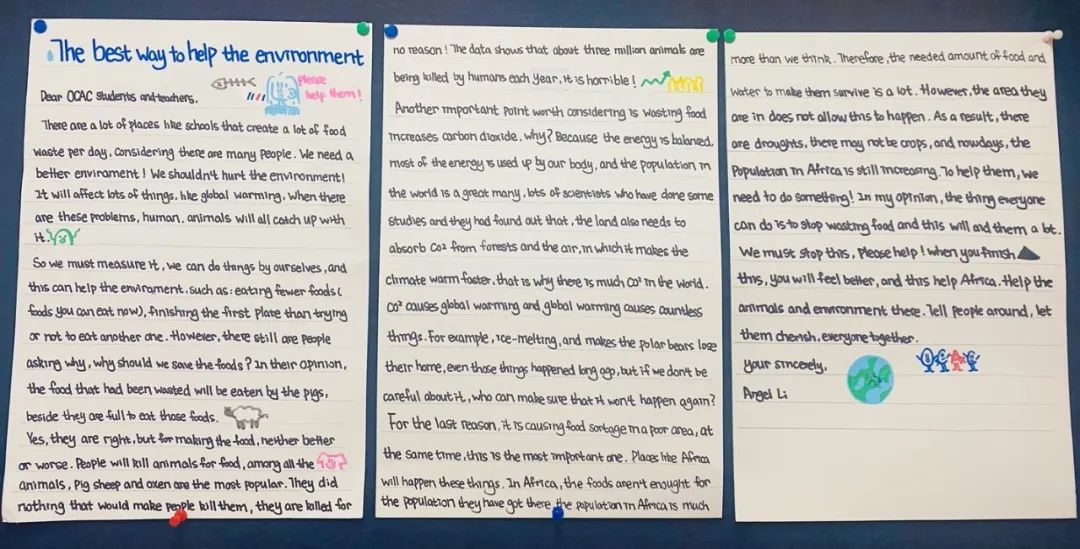 The best way to help the environment
please
help them!
Dear OCAC students and teachers,
There are a lot of places like schools that create a lot of food
waste per day, considering there are many people. We need a
better enviroment! We shouldn't hurt the environment!
It will affect lots of things, like global warming, when there
are these problems, human, animals will all catch up with
it.
So we must measure it, we can do things by ourselves, and
this can help the enviroment, such as: eating fewer foods (
foods you can eat now), finishing the first plate than trying
or not to eat another one. However, there still are people
asking why, why should we save the foods? In their opinion,
the food that had been wasted will be eaten by the pigs,
beside they are full to eat those foods.
Yes, they are right, but for making the food, neither better
or worse. People will kill animals for food, among all the
animals, pig sheep and oxen are the most popular. They did
nothing that would make people kill them, they are killed for
no reason! The data shows that about three million animals are
being killed by humans each year, it is horrible!
Another important point worth considering is wasting food
increases carbon dioxide. Why? Because the energy is balaned,
most of the energy is used up by our body, and the population in
the world is a great many, lots of scientists who have done some
studies and they had found out that, the land also needs to
absorb Co² from forests and the air, in which it makes the
climate warm faster, that is why there is much Co² in the world.
Co² causes global warming and global warming causes countless
things. For example, ice-melting, and makes the polar bears lose
their home, even those things happened long ago, but if we don't be
careful about it, who can make sure that it won't happen again?
For the last reason, it is causing food sortage in a poor area, at
the same time, this is the most important one. Places like Africa
will happen these things. In Africa, the foods aren't enought for
the population they have got there, the population in Africa is much
more than we think. Therefore, the needed amount of food and
water to make them survive is a lot. However, the area they
are in does not allow this to happen. As a result, there
are droughts, there may not be crops, and nowdays, the
Population in Africa is still increasing. To help them, we
need to do something! In my opinion, the thing everyone
can do is to stop wasting food and this will aid them a lot.
We must stop this, Please help! when you finish
this, you will feel better, and this help Africa. Help the
animals and environment there. Tell people around, let
them cherish, everyone together.
your sincerely,
Angel Li
OCAC